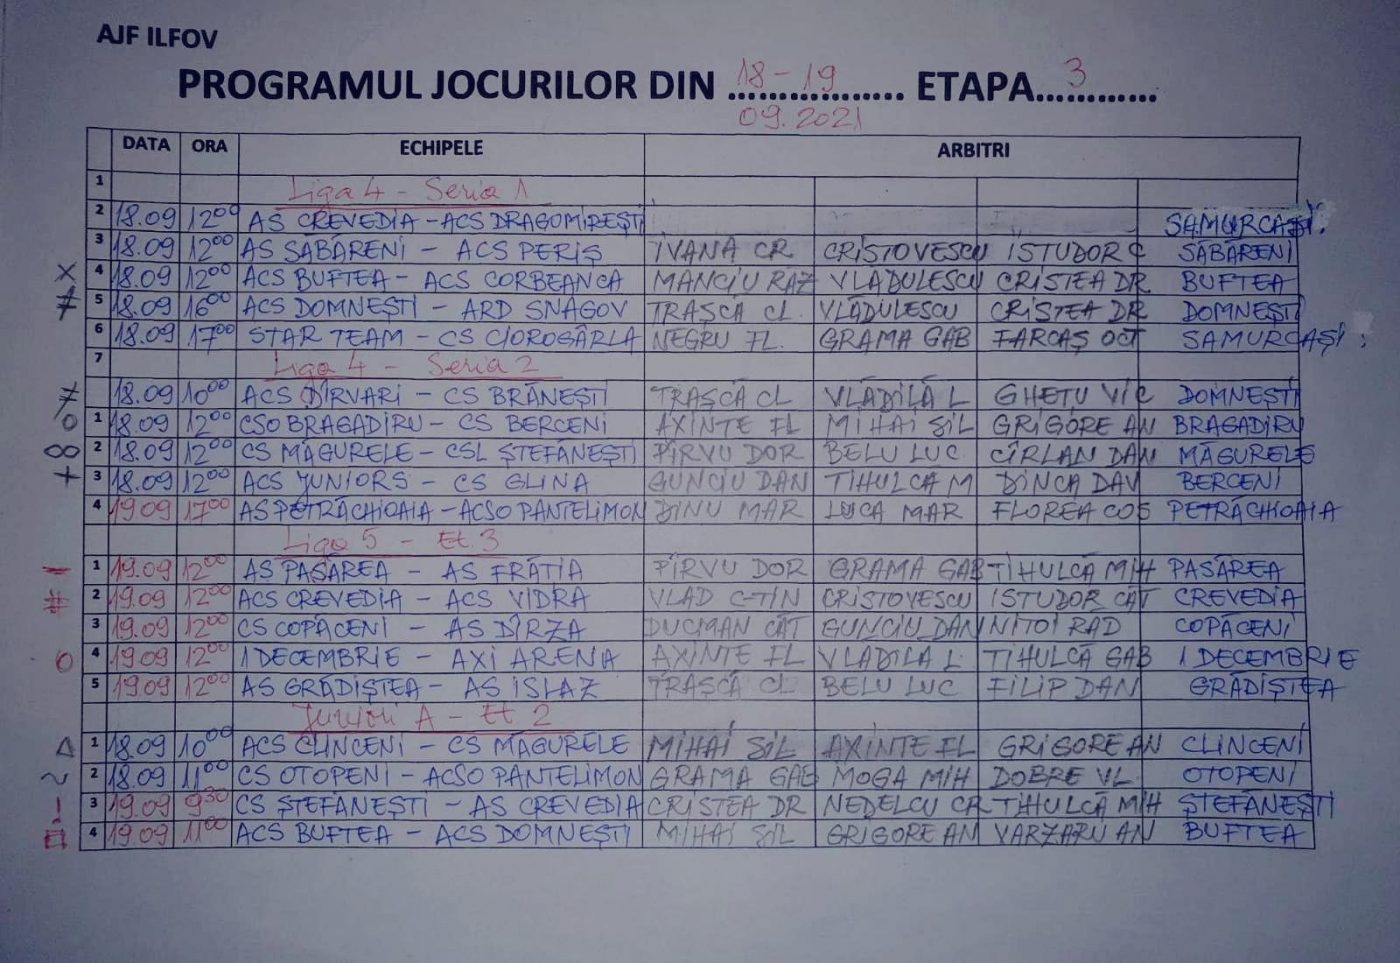 AJF ILFOV
PROGRAMUL JOCURILOR DIN 18-19 ETAPA 3
09.2021
DATA ORA ECHIPELE ARBITRI
1 Liga 4 - Seria 1
2 18.09 12⁰⁰ AS CREVEDIA - ACS DRAGOMIREȘTI SAMURCAȘI.
3 18.09 12⁰⁰ AS SĂBĂRENI - ACS PERIȘ IVANA CR CRISTOVESCU ISTUDOR C SĂBĂRENI
4 18.09 12⁰⁰ ACS BUFTEA - ACS CORBEANCA MANCIU RAZ VLĂDULESCU CRISTEA DR BUFTEA
5 18.09 16⁰⁰ ACS DOMNEȘTI - ARD SNAGOV TRAȘCĂ CL. VLĂDULESCU CRISTEA DR DOMNEȘTI
6 18.09 17⁰⁰ STAR TEAM - CS CIOROGÂRLA NEGRU FL. GRAMA GAB FARCAȘ OCT SAMURCAȘI.
7 Liga 4 - Seria 2
18.09 10⁰⁰ ACS DÎRVARI - CS BRĂNEȘTI TRAȘCĂ CL VLĂDILĂ L GHEȚU VIC DOMNEȘTI
1 18.09 12⁰⁰ CSO BRAGADIRU - CS BERCENI AXINTE FL MIHAI SIL GRIGORE AN BRAGADIRU
2 18.09 12⁰⁰ CS MĂGURELE - CSL ȘTEFĂNEȘTI PÎRVU DOR BELU LUC CÎRLAN DAN MĂGURELE
3 18.09 12⁰⁰ ACS JUNIORS - CS GLINA GUNCIU DAN TIHULCA M DINCA DAV BERCENI
4 19.09 17⁰⁰ AS PETRĂCHIOAIA - ACSO PANTELIMON DINU MAR LUCA MAR FLOREA COS PETRĂCHIOAIA
Liga 5 - Et. 3
1 19.09 12⁰⁰ AS PASĂREA - AS FRĂȚIA PÎRVU DOR GRAMA GAB TIHULCĂ MIH PASĂREA
2 19.09 12⁰⁰ ACS CREVEDIA - ACS VIDRA VLAD C-TIN CRISTOVESCU ISTUDOR CĂT CREVEDIA
3 19.09 12⁰⁰ CS COPĂCENI - AS DÎRZA DUCMAN CĂT GUNCIU DAN NIȚOI RAD COPĂCENI
4 19.09 12⁰⁰ 1 DECEMBRIE - AXI ARENA AXINTE FL VLĂDILĂ L. TIHULCĂ GAB 1 DECEMBRIE
5 19.09 12⁰⁰ AS GRĂDIȘTEA - AS ISLAZ TRAȘCĂ CL BELU LUC FILIP DAN GRĂDIȘTEA
Juniori A - Et 2
1 18.09 10⁰⁰ ACS CLINCENI - CS MĂGURELE MIHAI SIL AXINTE FL GRIGORE AN CLINCENI
2 18.09 11⁰⁰ CS OTOPENI - ACSO PANTELIMON GRAMA GAB MOGA MIH DOBRE VL OTOPENI
3 19.09 9³⁰ CS ȘTEFĂNEȘTI - AS CREVEDIA CRISTEA DR NEDELCU CR TIHULCĂ MIH ȘTEFĂNEȘTI
4 19.09 11⁰⁰ ACS BUFTEA - ACS DOMNEȘTI MIHAI SIL GRIGORE AN VARZARU AN BUFTEA